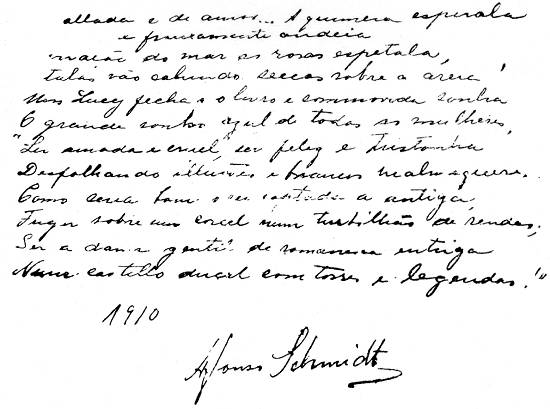 e de amor... A quimera
e francamente ondeia
do mar as rosas espetala,
vão cahindo seccas sobre a areia!
Lucy fecha o livro e commovida sonha
O grande sonho azul de todas as mulheres,
"Ser amada e cruel, ser feliz e tristonha
Desfolhando illusões e brancos malmequeres.
Como seria bom a antiga,
Fugir sobre um corcel num turbilhão de rendas,
Ser a dama gentil de romanesca intriga
Num castello ducal com torres e legendas!"
1910
Affonso Schmidt